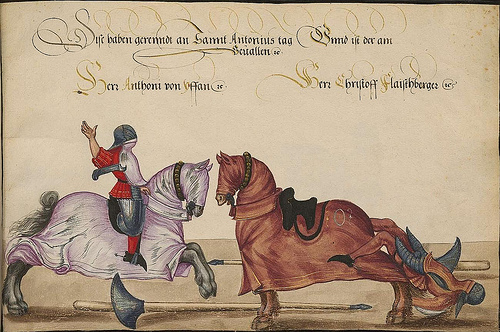 Dise haben gerenndt an Sannt Anntonius tag Vnnd ist der am
Geuallen ꝛc
Herr Anthoni von Yffan ꝛc
Herr Christoff Flaischberger ꝛc